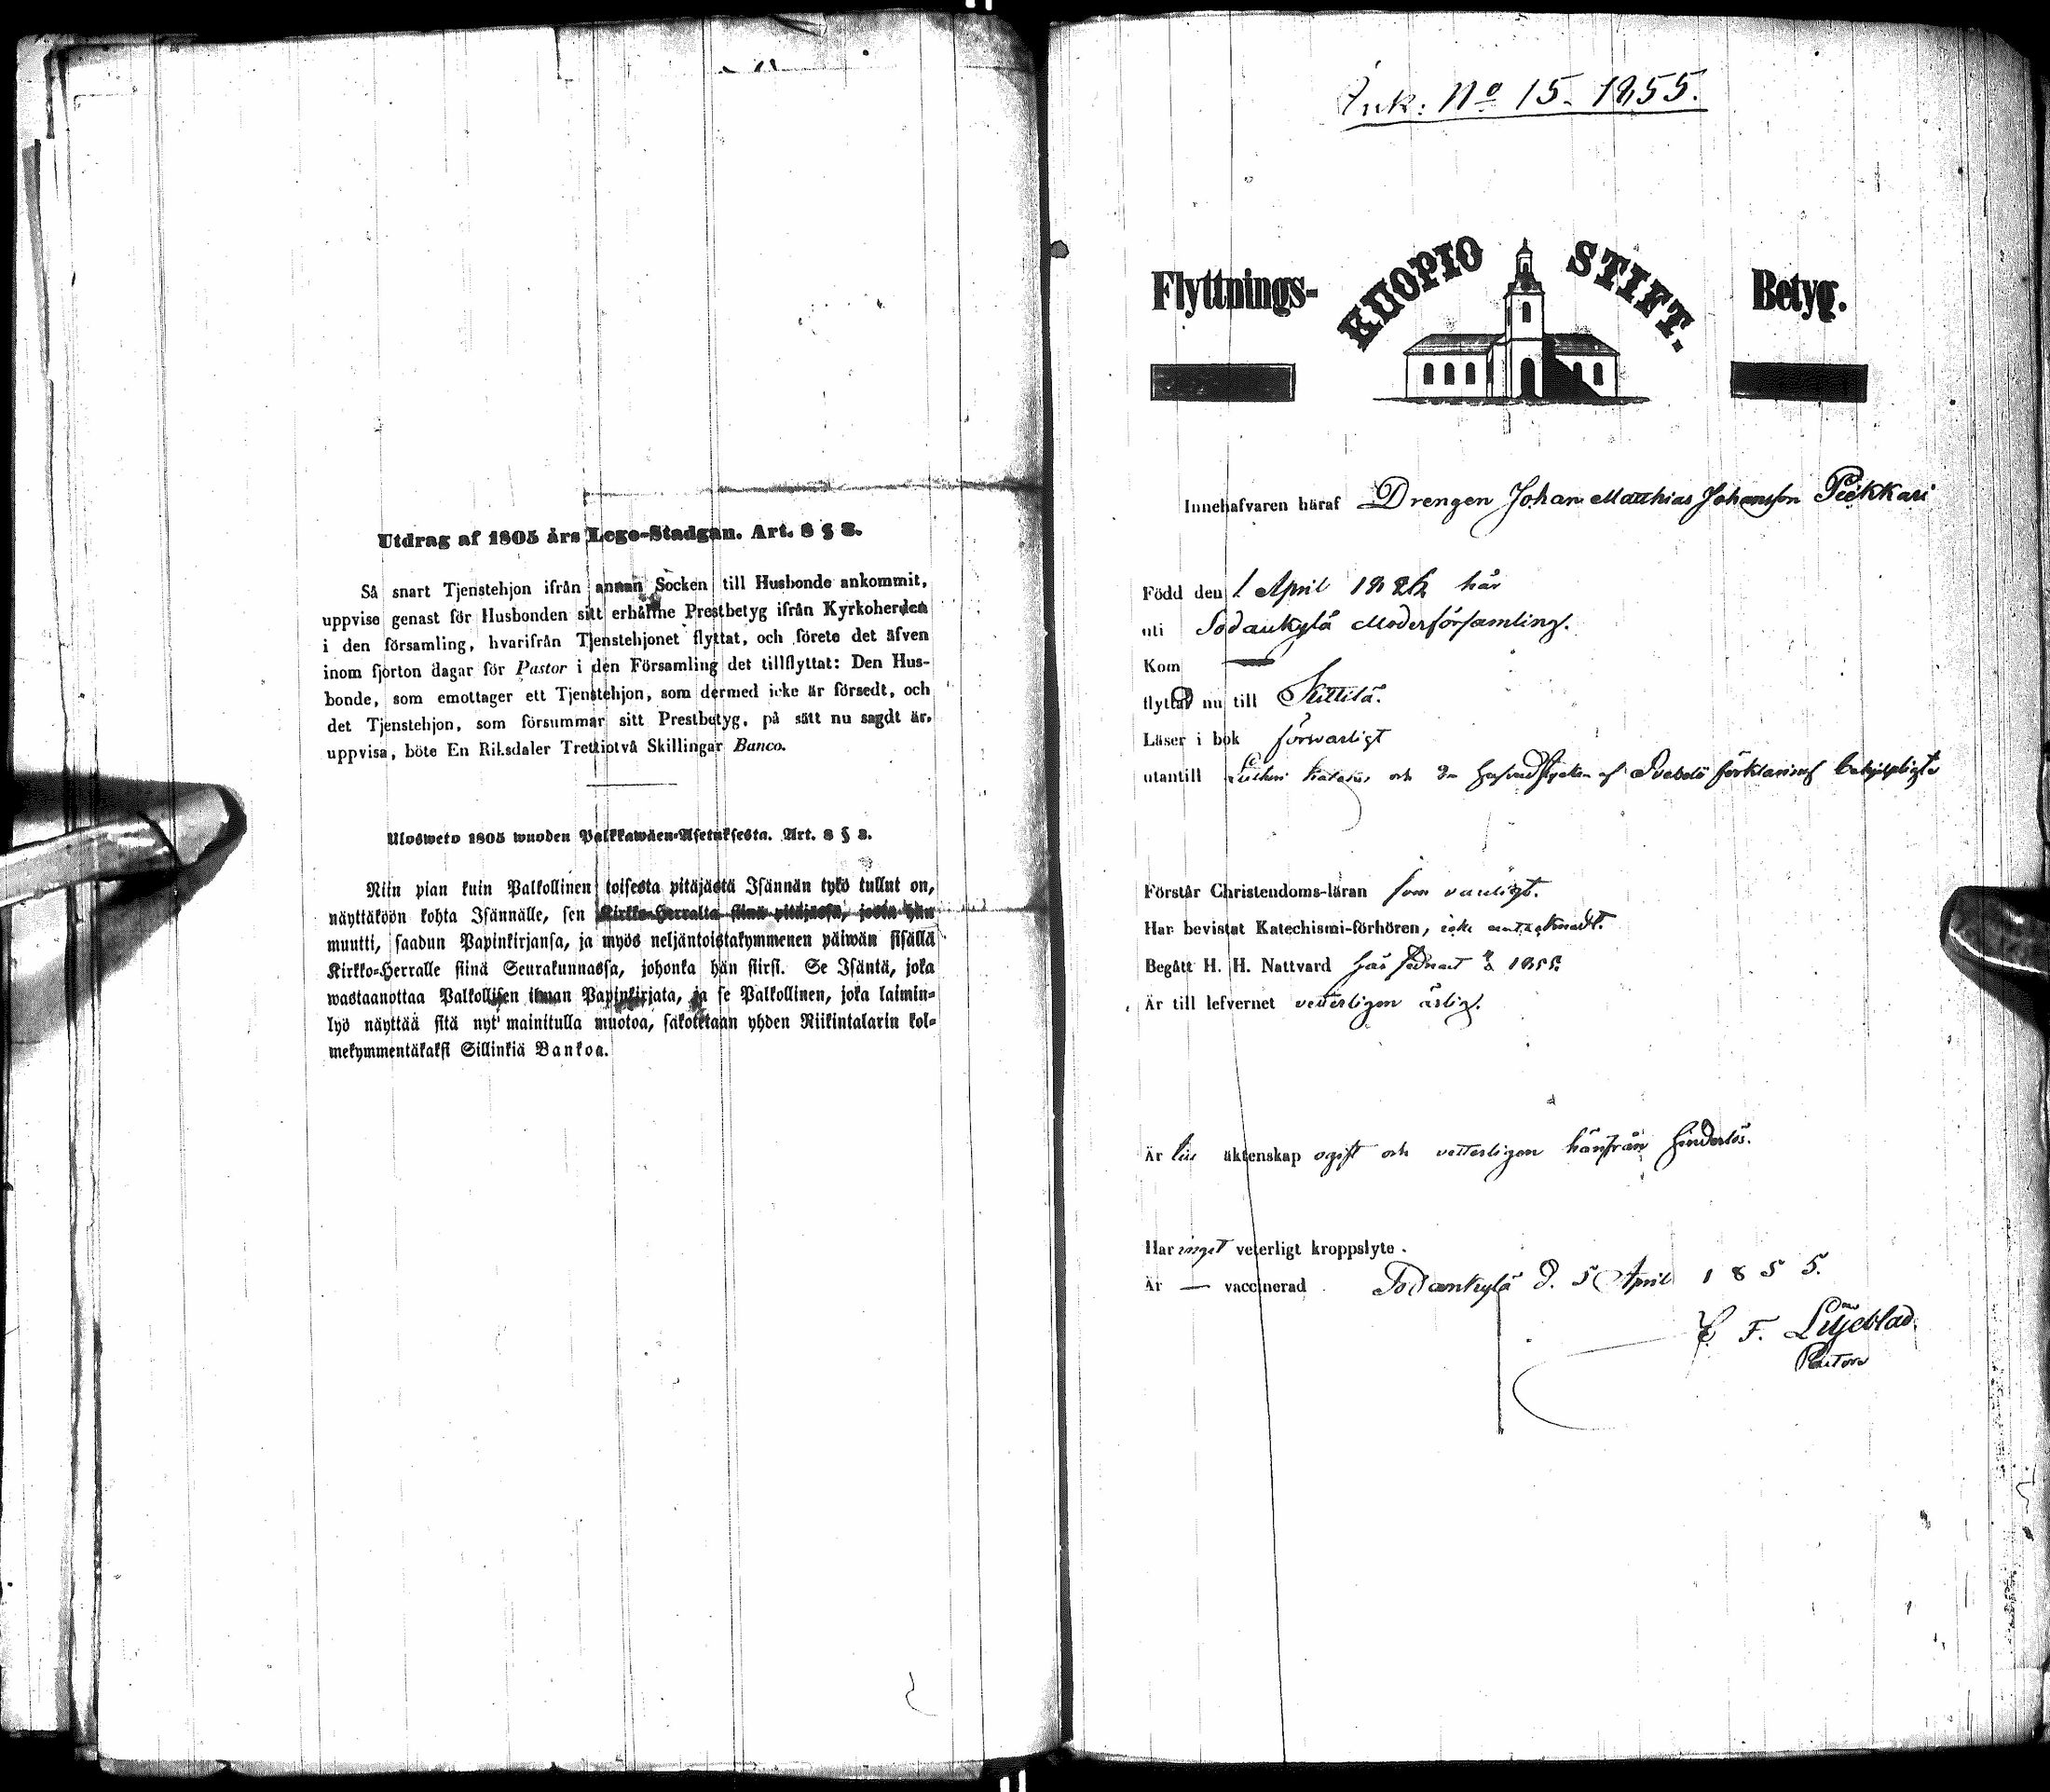 Utdrag af 1805 års Lego-Stadgan. Art. 8 § 8.
Så snart Tjenstehjon ifrån annan Socken till Husbonde ankommit,
uppvise genast för Husbonden sitt erhållne Prestbetyg ifrån Kyrkoherden
i den församling, hvarifrån Tjenstehjonet flyttat, och förete det äfven
inom fjorton dagar för Pastor i den Församling det tillflyttat: Den Hus-
bonde, som emottager ett Tjenstehjon, som dermed icke är försedt, och
det Tjenstehjon, som försummar sitt Prestbetyg, på sätt nu sagdt är,
uppvisa, böte En Riksdaler Trettiotvå Skillingar Banco.
Ulosweto 1805 wuoden Palkkawäen-Asetuksesta. Art. 8 § 8.
Niin pian kuin Palkollinen toisesta pitäjästä Isännän tykö tullut on,
näyttäköön kohta Isännälle, sen Kirkko-Herralta siinä pitäjässä, josta hän
muutti, saadun Papinkirjansa, ja myös neljäntoistakymmenen päiwän sisällä
Kirkko-Herralle siinä Seurakunnassa, johonka hän siirsi. Se Isäntä, joka
wastaanottaa Palkollisen ilman Papinkirjata, ja se Palkollinen, joka laimin-
lyö näyttää sitä nyt mainitulla muotoa, sakotetaan yhden Riikintalarin kol-
mekymmentäkaksi Sillinkiä Bankoa.
Ank: No 15. 1855.
Flyttnings- KUOPIO STIFT. Betyg.
Innehafvaren häraf Drengen Johan Matthias Johansson Piekkari
Född den 1 April här
uti Sodankylä Moderförsamling.
Kom —
flyttar nu till Kittilä.
Läser i bok försvarligt
utantill Lutheri och af Svebelii
Förstår Christendoms-läran som vanligt.
Har bevistat Katechismi-förhören, icke antecknadt.
Begått H. H. Nattvard här sednast 1855.
Är till lefvernet veterligen ärlig.
Är till äktenskap ogift och vetterligen härifrån hinderlös.
Har inget veterligt kroppslyte.
Är — vaccinerad Sodankylä d. 5 April 1855.
E. F. Liljeblad
Pastor